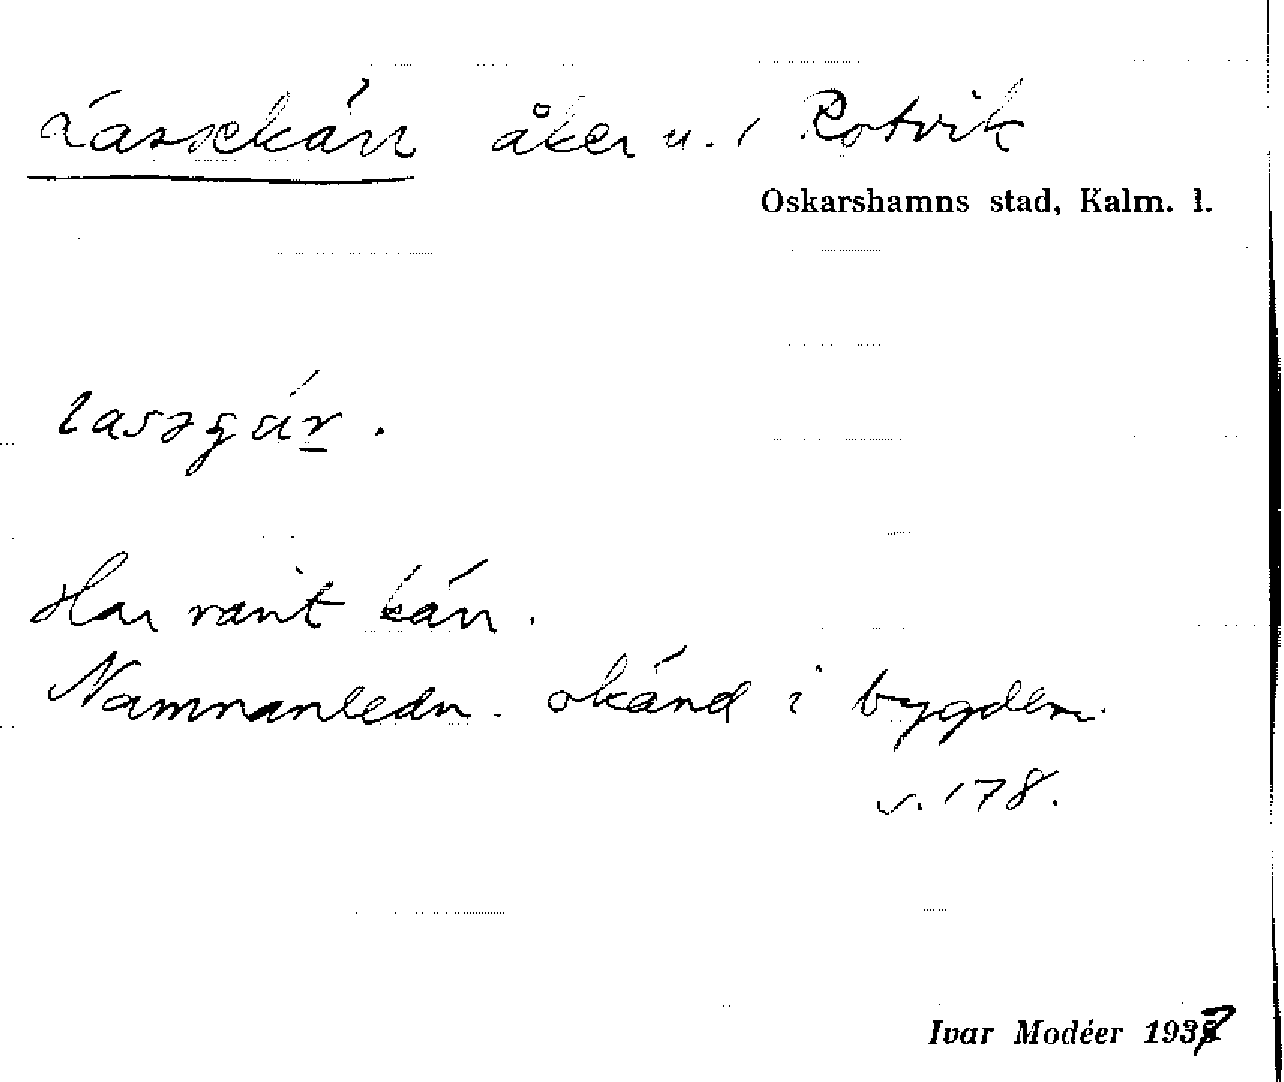 Lassekärr åker u. Rotvik
Oskarshamns stad, Kalm. l.
Har varit kärr.
Namnanledn. okänd i bygden.
v. 178.
Ivar Modéer 1937